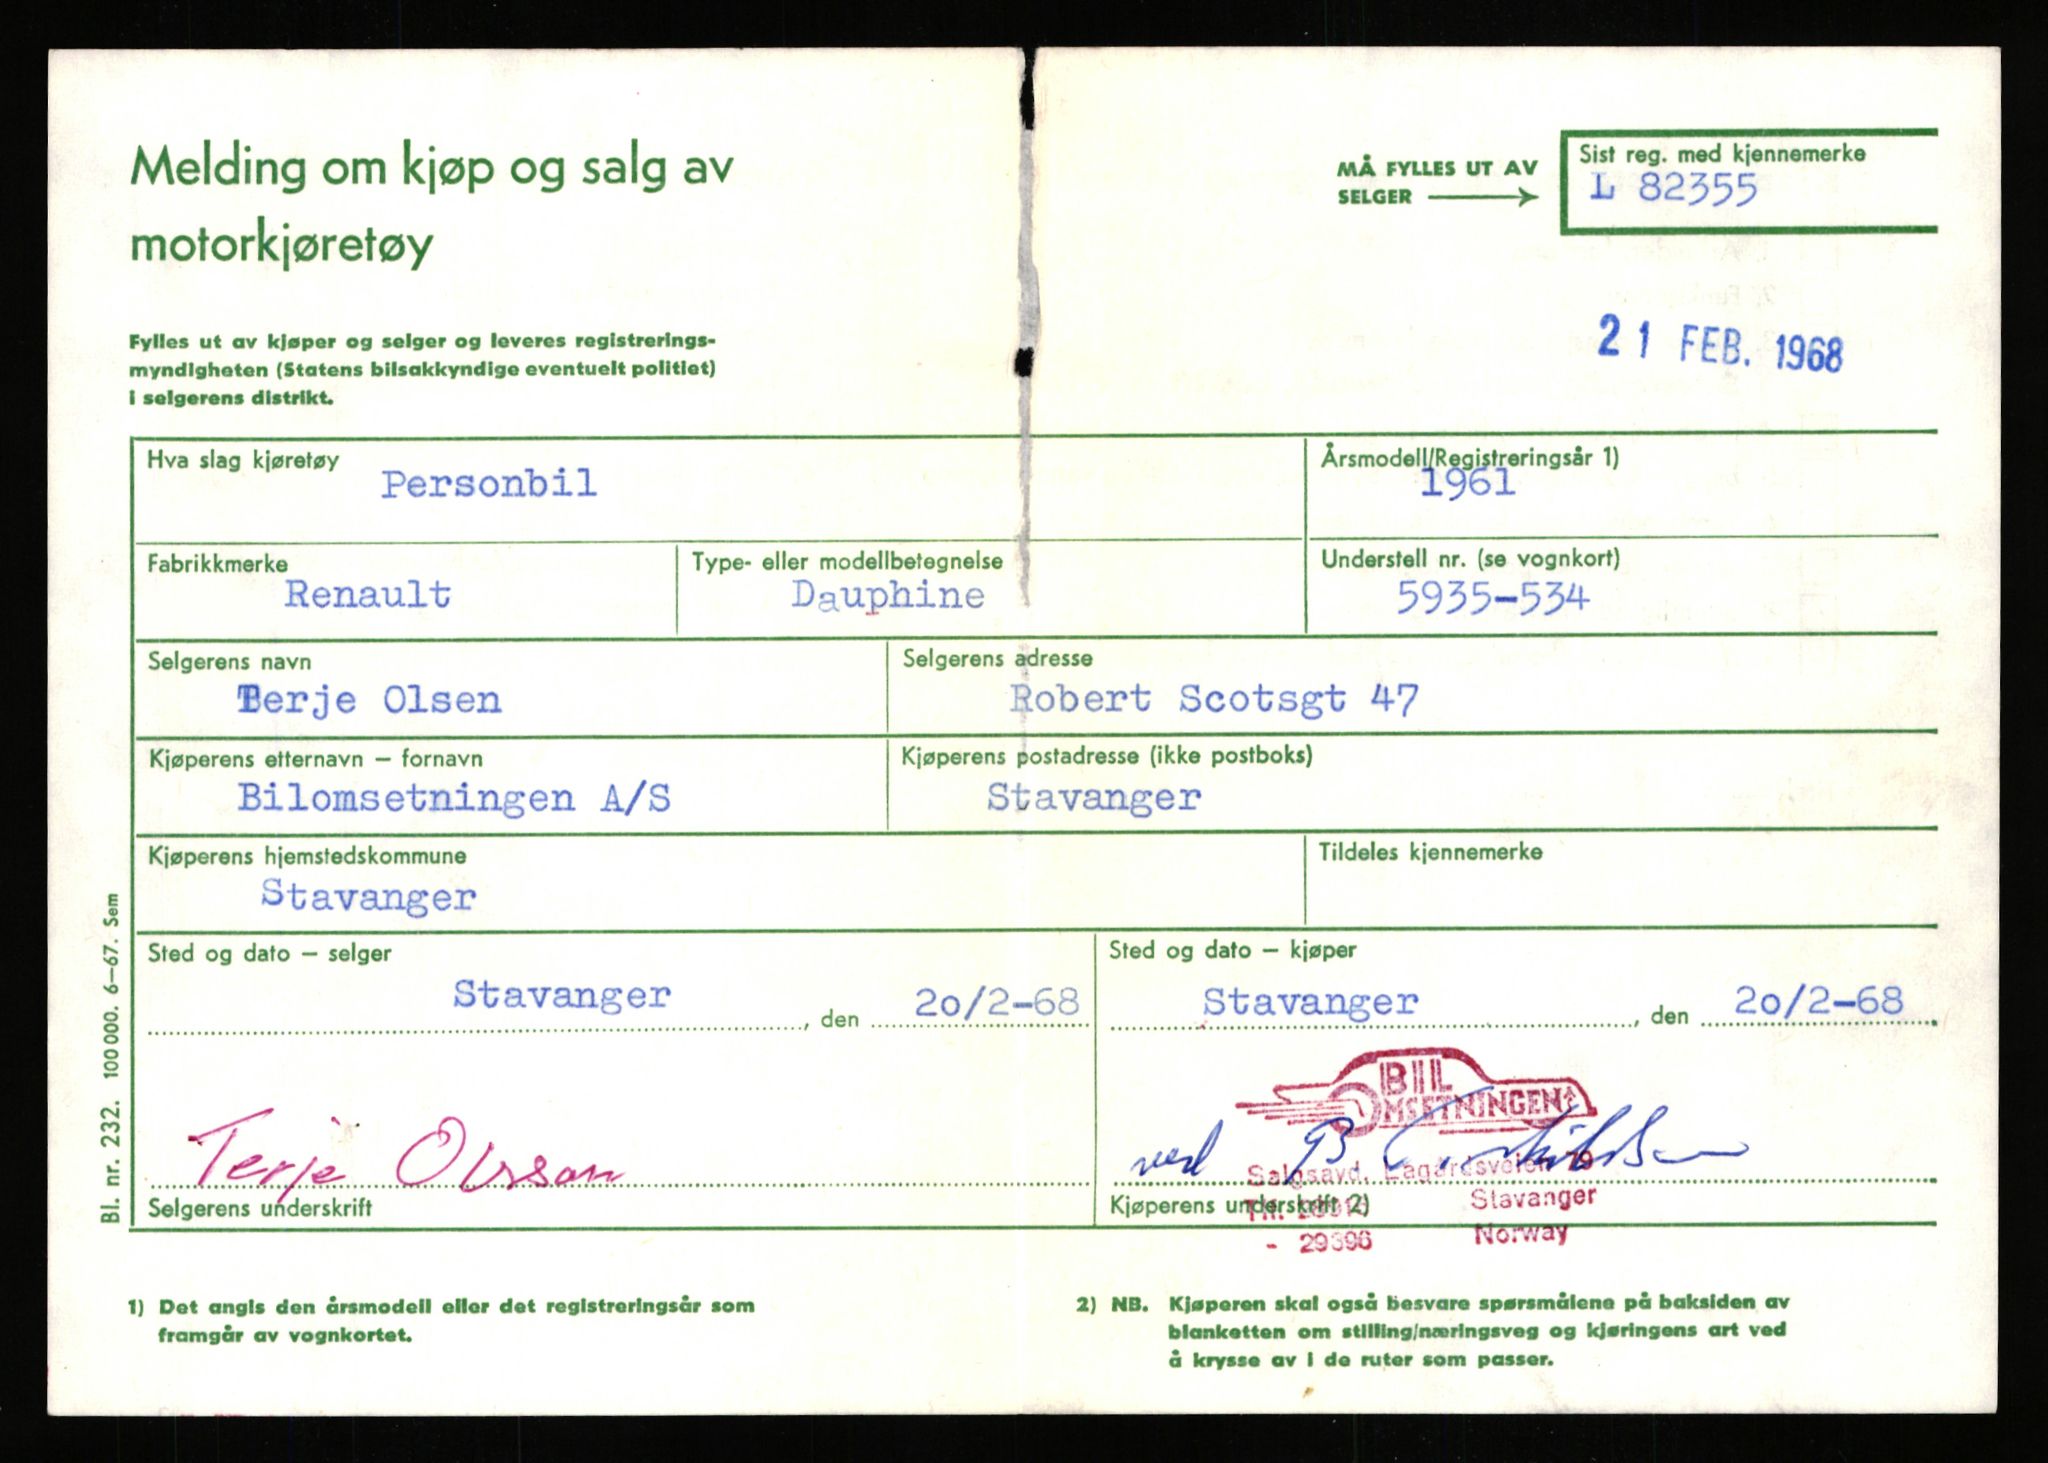 Melding om kjøp og salg av
motorkjøretøy
MÅ FYLLES UT AV
SELGER
Sist reg. med kjennemerke
L 82355
21 FEB. 1968
Fylles ut av kjøper og selger og leveres registrerings-
myndigheten (Statens bilsakkyndige eventuelt politiet)
i selgerens distrikt.
Hva slag kjøretøy
Personbil
Årsmodell/Registreringsår 1)
1961
Fabrikkmerke
Renault
Type- eller modellbetegnelse
Dauphine
Understell nr. (se vognkort)
5935-534
Selgerens navn
Terje Olsen
Selgerens adresse
Robert Scotsgt 47
Kjøperens etternavn – fornavn
Bilomsetningen A/S
Kjøperens postadresse (ikke postboks)
Stavanger
Kjøperens hjemstedskommune
Stavanger
Tildeles kjennemerke
Sted og dato – selger
Stavanger, den 20/2-68
Sted og dato – kjøper
Stavanger, den 20/2-68
BIL
OMSETNINGEN
Terje Olsson
ved B
Salgsavd. Lagårdsveien 79
Selgerens underskrift
Kjøperens underskrift 2)
Tlf.
Stavanger
- 29396
Norway
1) Det angis den årsmodell eller det registreringsår som
framgår av vognkortet.
2) NB. Kjøperen skal også besvare spørsmålene på baksiden av
blanketten om stilling/næringsveg og kjøringens art ved
å krysse av i de ruter som passer.
Bl. nr. 232. 100 000. 6–67. Sem